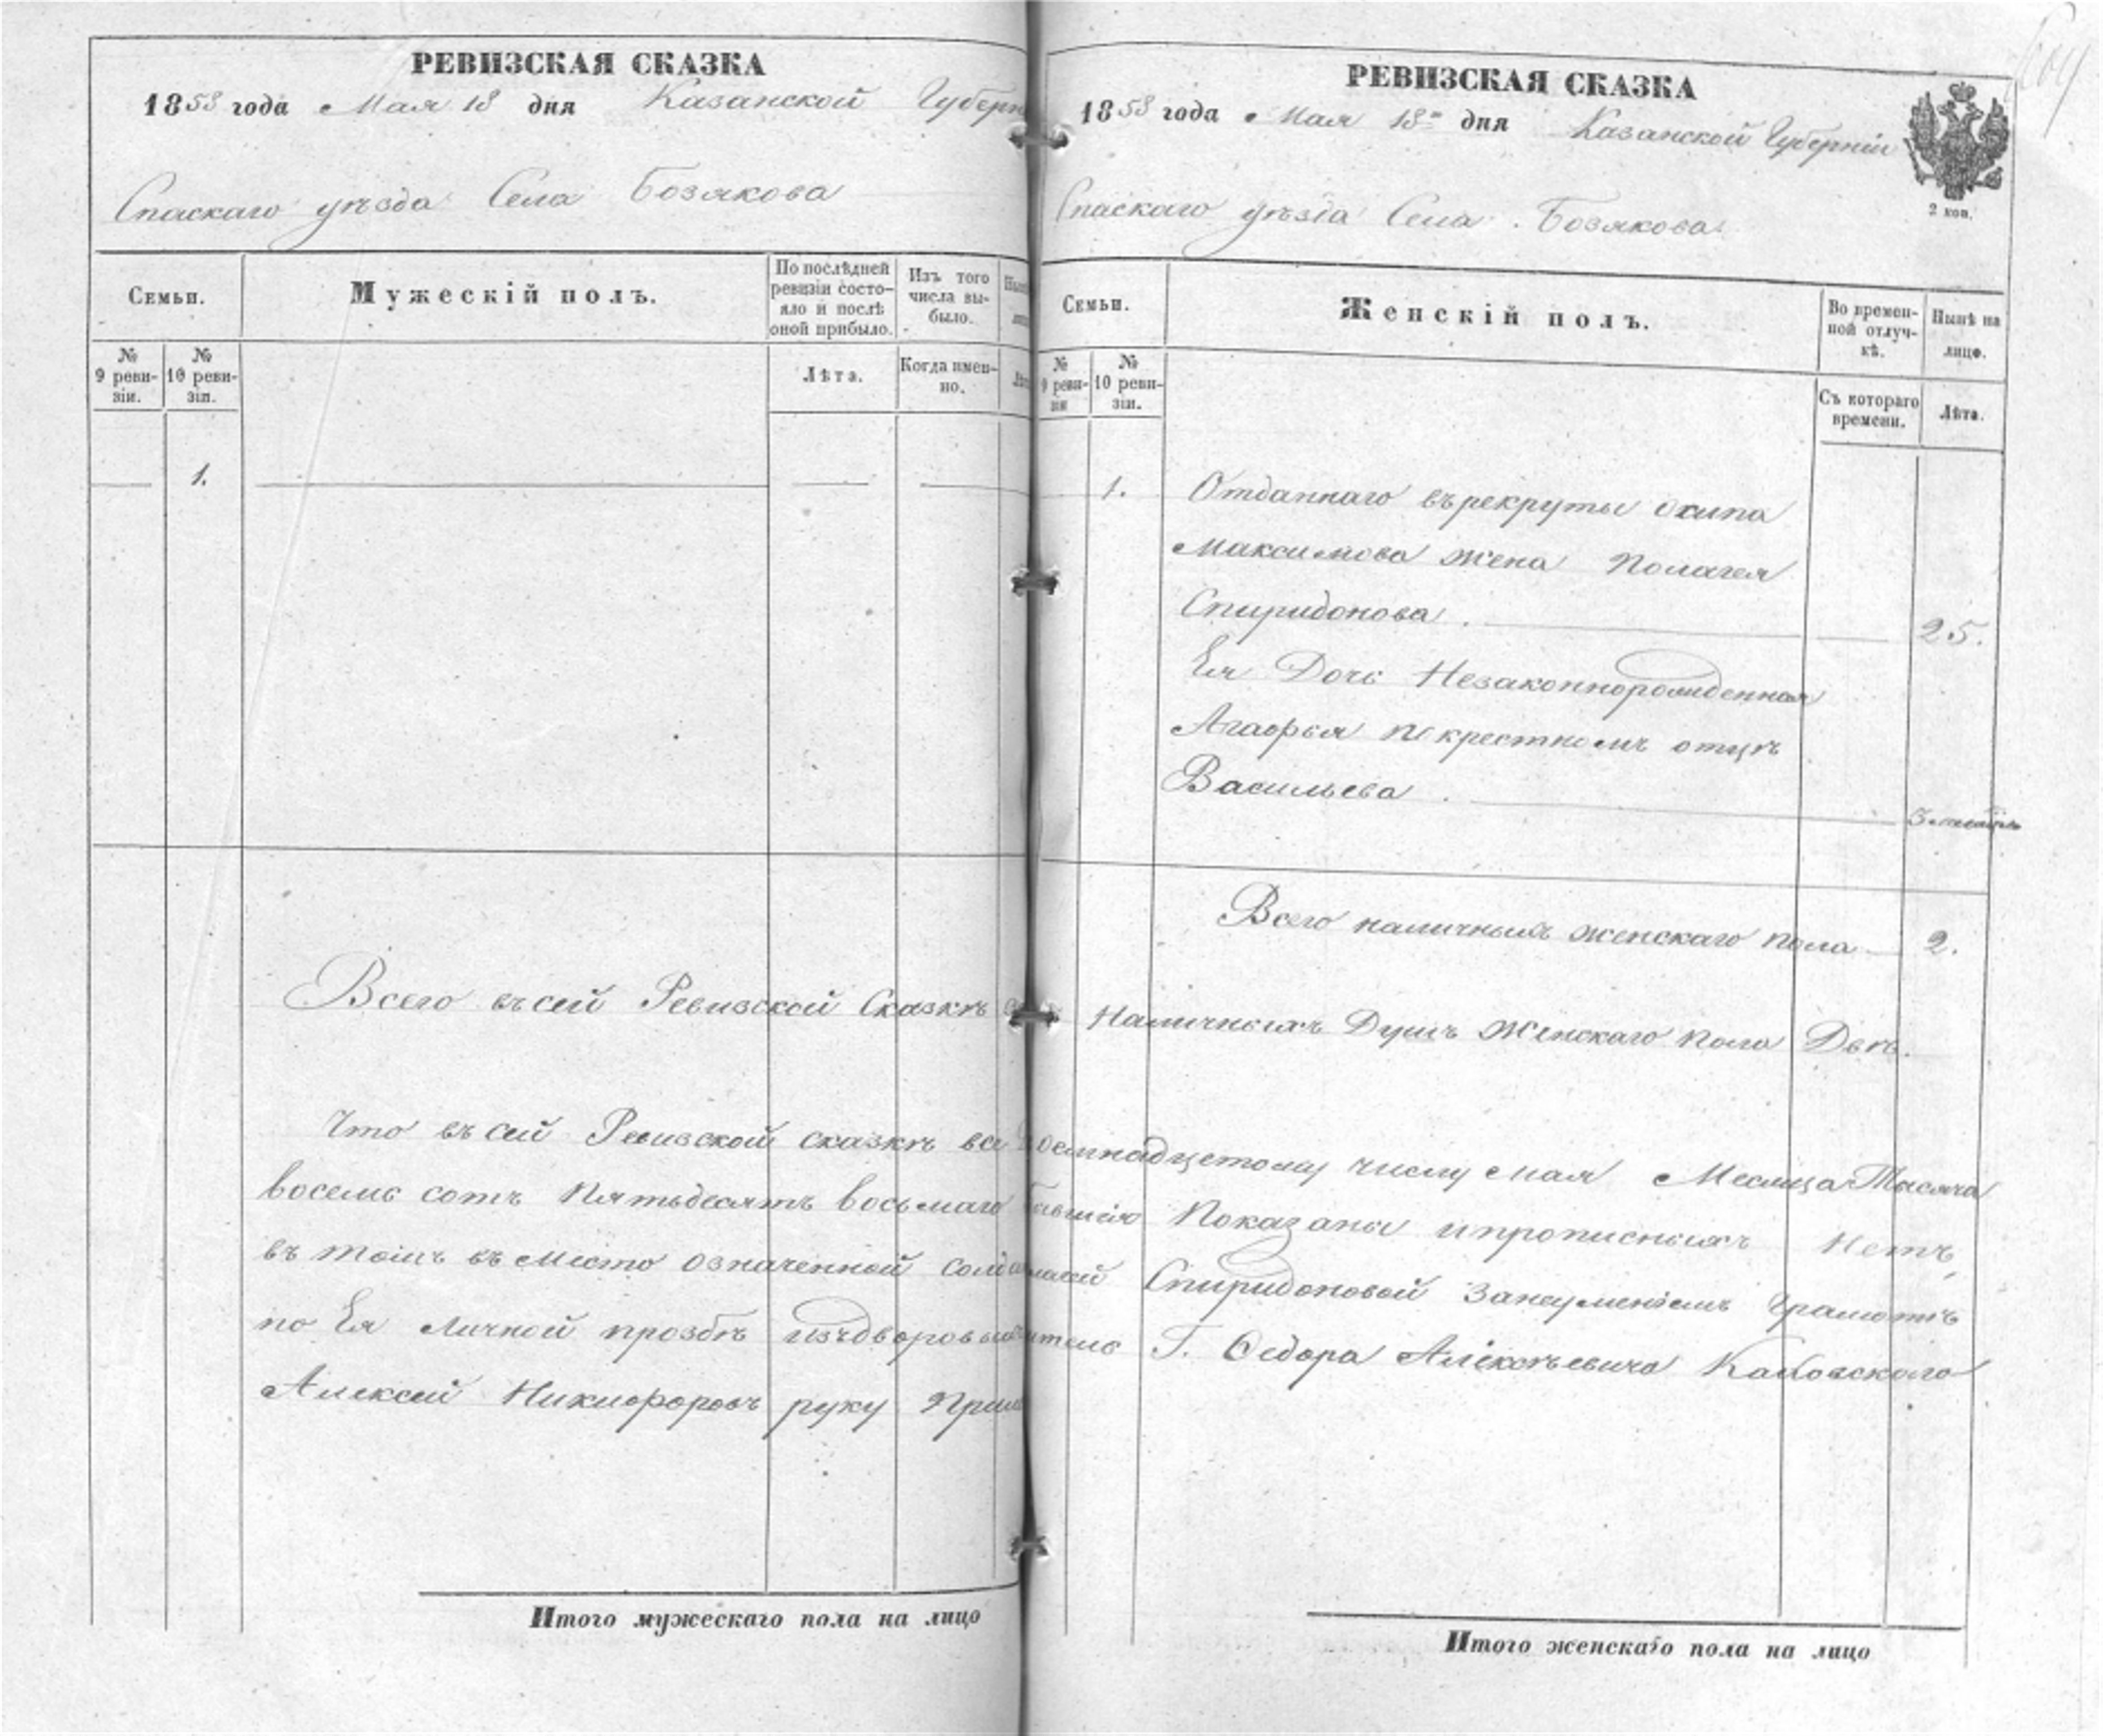 РЕВИЗСКАЯ СКАЗКА
1858 года Мая 18 дня Казанской Губерн
Спаскаго уѣзда Села Бозякова
Семьи.
Мужескій полъ.
По послѣдней ревизіи состояло и послѣ оной прибыло.
Изъ того числа выбыло.
№ 9 ревизіи.
№ 10 ревизіи.
Лѣта.
Когда именно.
1.
Всего въ сей Ревизской Сказкѣ
Что въ сей Ревизской сказкѣ все
восемь сотъ Пятьдесятъ восьмаго
въ томъ въ место означенной солд
по Ея личной прозбѣ изъ дворовых
Алексей Никифоровъ руку При
Итого мужескаго пола на лицо
РЕВИЗСКАЯ СКАЗКА
1858 года Мая 18 дня Казанской Губерніи
2 коп.
Спаскаго уѣзда Села Бозякова
Семьи.
Женскій полъ.
Во временной отлучкѣ.
Нынѣ на лицо.
№ 9 ревизіи
№ 10 ревизіи.
Съ котораго времени.
Лѣта.
1. Отданнаго въ рекруты Осипа
Максимова жена Полагея
Спиридонова. 25.
Ея Дочь Незаконнорожденная
Агафья по крестномъ отцѣ
Васильева.
Всего наличныхъ женскаго пола 2.
Наличныхъ Душъ Женскаго пола Двѣ.
осмнадцетому числу мая Месяца Тысяча
бывшія Показаны и прописныхъ нетъ,
Спиридоновой за неуменіемъ Грамотѣ
Г. Федора Алексѣевича
Итого женскаго пола на лицо